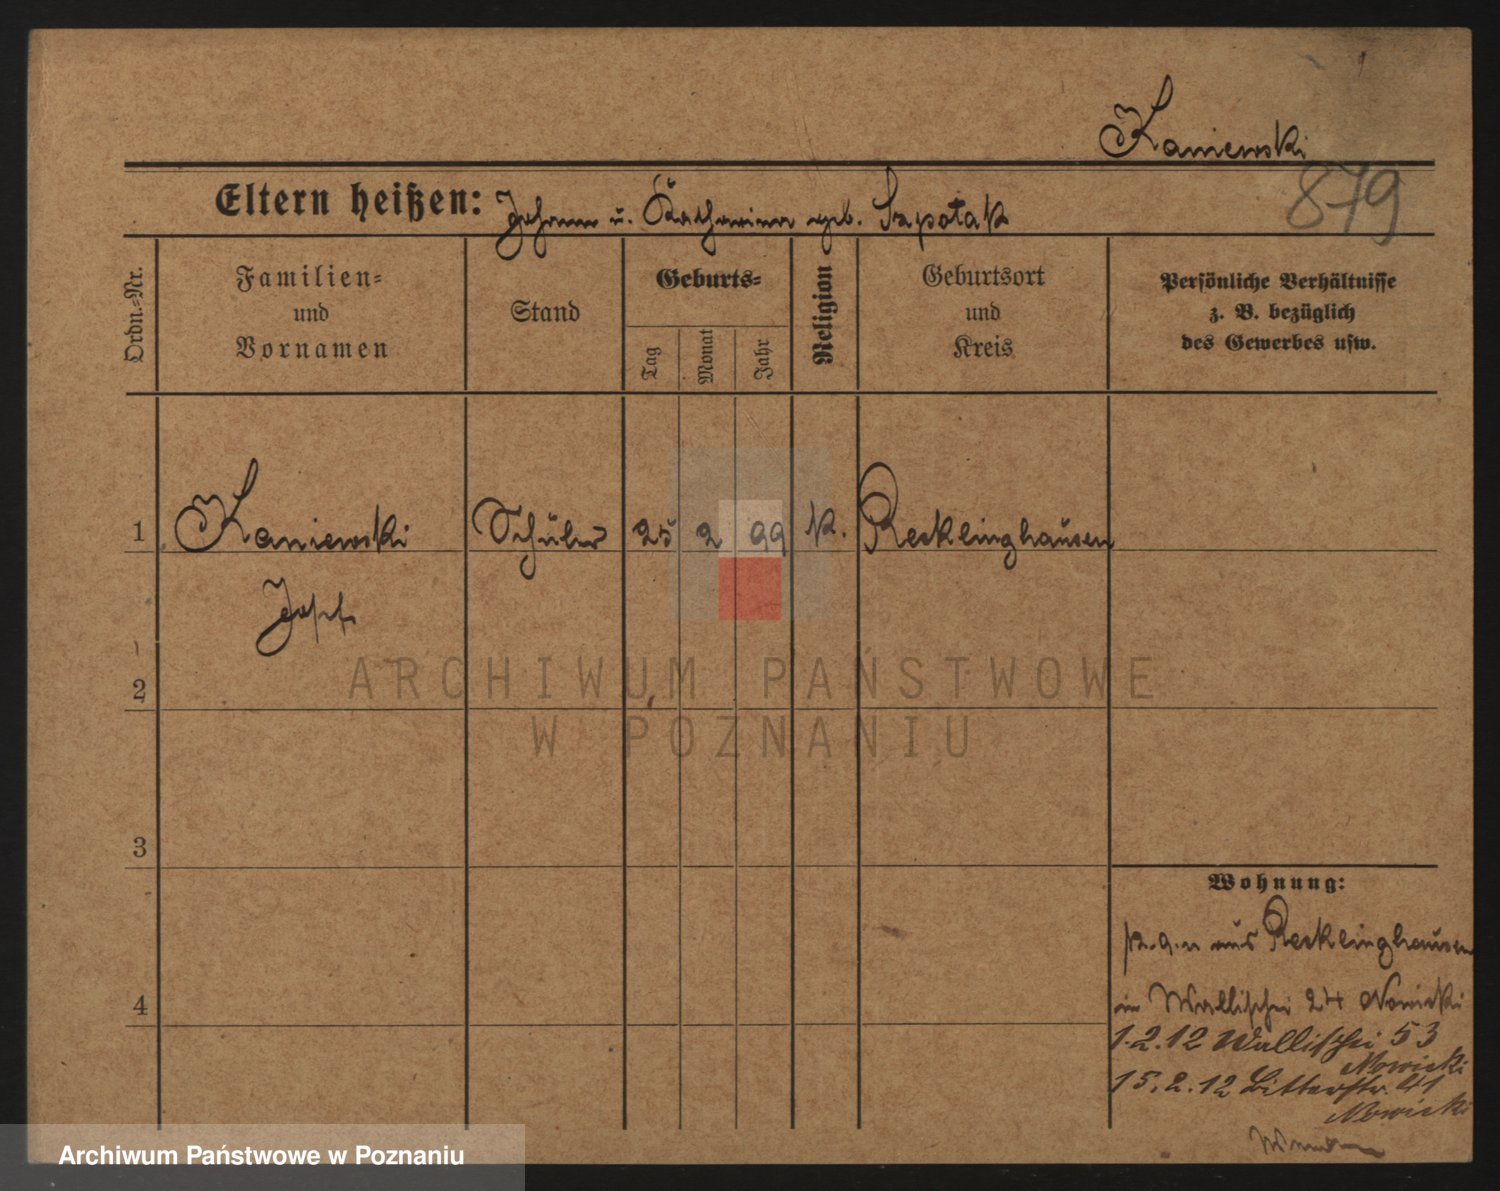 Kaniewski
879
Eltern heißen: Johann u. Katharina geb. Szpotak
Ordn.-Nr.
Familien-
und
Vornamen
Stand
Geburts-
Tag
Monat
Jahr
Religion
Geburtsort
und
Kreis
Persönliche Verhältnisse
z. B. bezüglich
des Gewerbes usw.
1 Kaniewski Schüler 25 2 99 k. Recklinghausen
Josef
2
3
4
Wohnung:
aus Recklinghausen
in Wallischei 24 Nowicki
1.2.12 Wallischei 53
Nowicki
15.2.12 41
Nowicki
ARCHIWUM PAŃSTWOWE
W POZNANIU
Archiwum Państwowe w Poznaniu